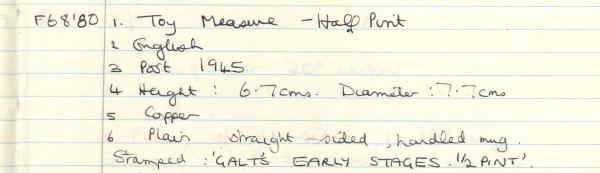 F68'80 1. Toy Measure - Half Pint
2 English
3 Post 1945
4 Height : 6.7cms. Diameter : 7.7cms
5 Copper
6 Plain straight-sided, handled mug.
Stamped : 'GALT'S EARLY STAGES. 1/2 PINT'.